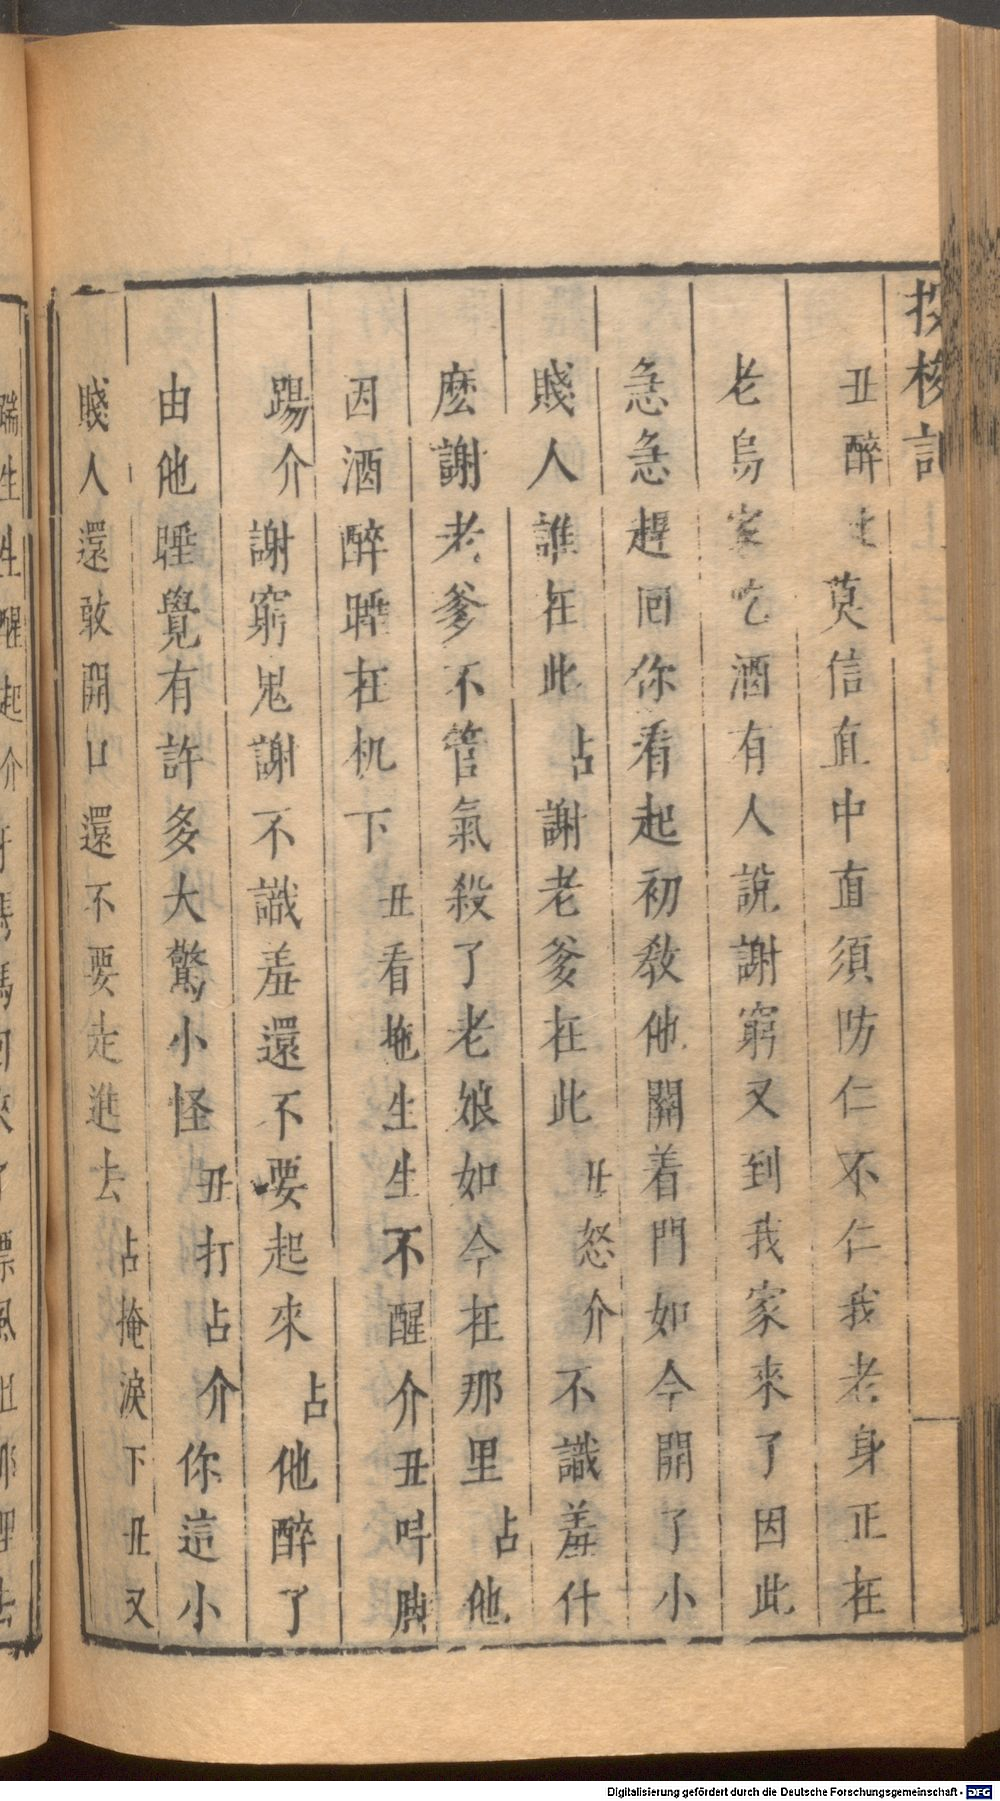 投梭記
丑醉上莫信直中直須防仁不仁我老身正在
老烏家吃酒有人說謝窮又到我家來了因此
急急趕囘你看起初教他關着門如今開了小
賤人誰在此占謝老爹在此丑怒介不識羞什
麽謝老爹不管氣殺了老娘如今在那里占他
因酒醉睡在机下丑看拖生生不醒介丑呌脚
踢介謝窮鬼謝不識羞還不要起來占他醉了
由他睡覺有許多大驚小怪丑打占介你這小
賤人還敢開口還不要走進去占掩淚下丑又
踹生生醒起介
Digitalisierung gefördert durch die Deutsche Forschungsgemeinschaft - DFG